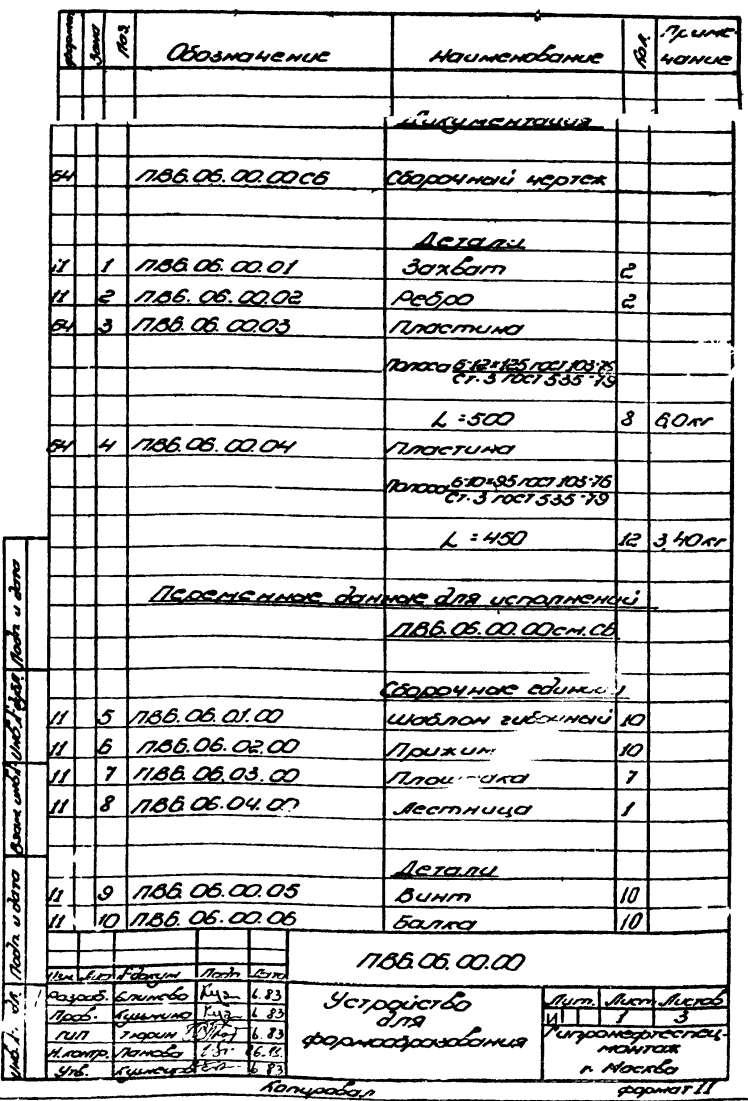 формат Зона Поз. Обозначение Наименование Кол. Примечание
Документация
БЧ ПВ6.06.00.00СБ Сборочный чертеж
Детали
11 1 ПВ6.06.00.01 Захват 2
11 2 ПВ6.06.00.02 Ребро 2
БЧ 3 ПВ6.06.00.03 Пластина
Полоса Б-12×125 ГОСТ 103-76
Ст.3 ГОСТ 535-79
L=500 8 6,0кг
БЧ 4 ПВ6.06.00.04 Пластина
Полоса Б-10×95 ГОСТ 103-76
Ст.3 ГОСТ 535-79
L=450 12 3,40кг
Переменные данные для исполнений
ПВ6.06.00.00 см.СБ
Сборочные единицы
11 5 ПВ6.06.01.00 Шаблон гибочный 10
11 6 ПВ6.06.02.00 Прижим 10
11 7 ПВ6.06.03.00 Площадка 7
11 8 ПВ6.06.04.00 Лестница 1
Детали
11 9 ПВ6.06.00.05 Винт 10
11 10 ПВ6.06.00.06 Балка 10
Подп. и дата
Взам. инв.
Подп. и дата
ПВ6.06.00.00
Изм. Лист № докум. Подп. Дата
Разраб. 6.83
Пров. 6.83
ГИП Тюрин 6.83
Н.контр. Панова
Утв. 6.83
Устройство
для
формообразования
Лит. Лист Листов
И 1 3
Гипронефтеспец-
монтаж
г. Москва
Копировал формат 11